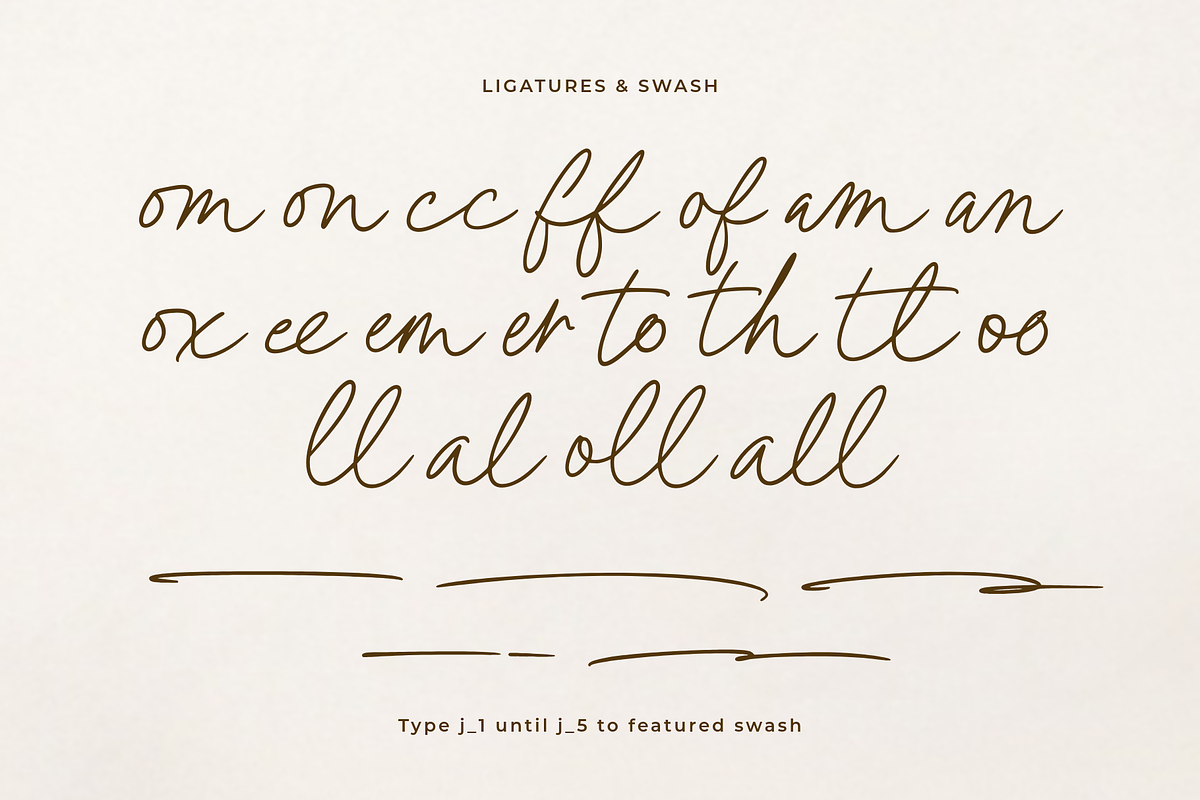 LIGATURES & SWASH
om on cc ff of am an
ox ee em er to th tt oo
ll al oll all
Type j_1 until j_5 to featured swash